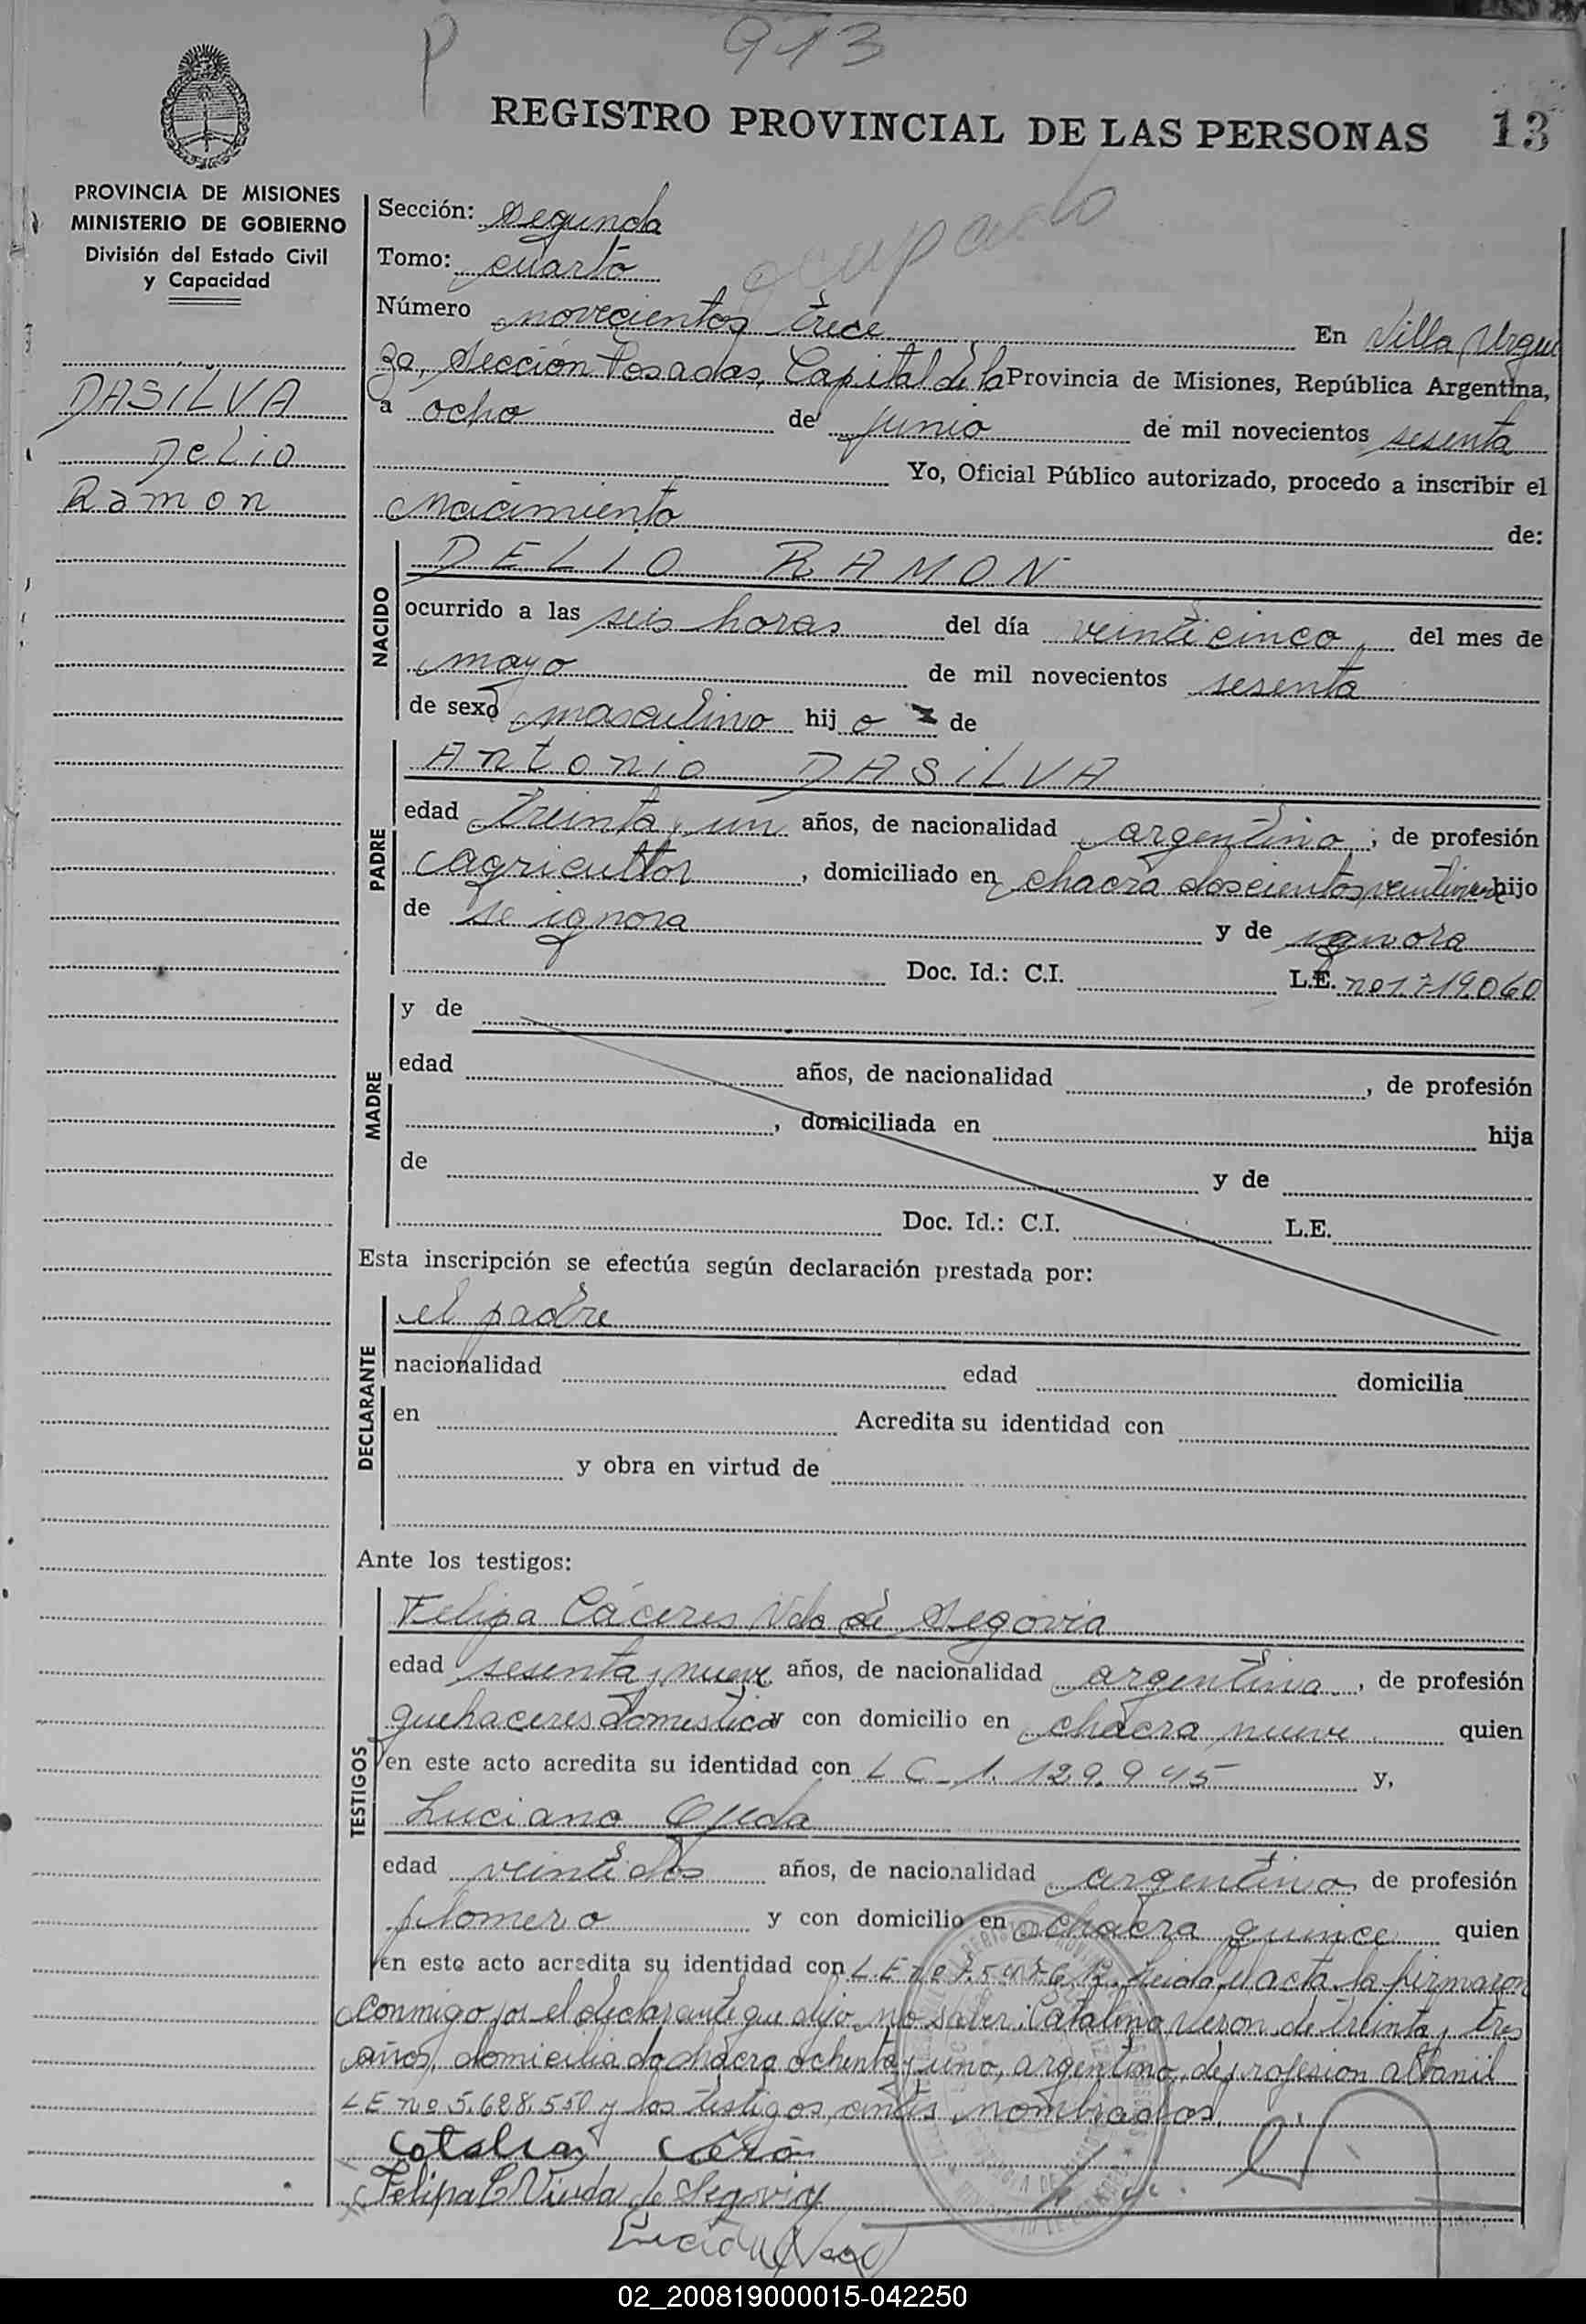 P 913
REGISTRO PROVINCIAL DE LAS PERSONAS 13
PROVINCIA DE MISIONES
MINISTERIO DE GOBIERNO
División del Estado Civil
y Capacidad
DASILVA
Delio
Ramon
Sección: segunda
ocupado
Tomo: cuarto
Número novecientos trece En Villa Urqui
za, Sección Posadas, Capital de la Provincia de Misiones, República Argentina,
a ocho de junio de mil novecientos sesenta
Yo, Oficial Público autorizado, procedo a inscribir el
Nacimiento de:
NACIDO
DELIO RAMON
ocurrido a las seis horas del día veinticinco, del mes de
mayo de mil novecientos sesenta
de sexo masculino hij o de
PADRE
Antonio DASILVA
edad treinta y un años, de nacionalidad argentino ; de profesión
agricultor , domiciliado en chacra doscientos hijo
de se ignora y de ignora
Doc. Id.: C.I. L.E. no 1.719.060
MADRE
y de
edad años, de nacionalidad , de profesión
, domiciliada en hija
de y de
Doc. Id.: C.I. L.E.
Esta inscripción se efectúa según declaración prestada por:
DECLARANTE
el padre
nacionalidad edad domicilia
en Acredita su identidad con
y obra en virtud de
Ante los testigos:
TESTIGOS
Felipa Cáceres Vda de Segovia
edad sesenta y nueve años, de nacionalidad argentina , de profesión
quehaceres domesticos con domicilio en chacra nueve quien
en este acto acredita su identidad con L C - 1.129.945 y,
Luciano Ojeda
edad veintidos años, de nacionalidad argentino, de profesión
plomero y con domicilio en chacra quince quien
en este acto acredita su identidad con L E no Leida el acta la firmaron
conmigo por el declarante que dijo no saber: Catalino Veron de treinta y tres
años, domiciliado chacra ochenta y uno, argentino, de profesion albanil
L E no 5.628.550 y los testigos antes nombrados.
Felipa C Viuda de Segovia
02_200819000015-042250